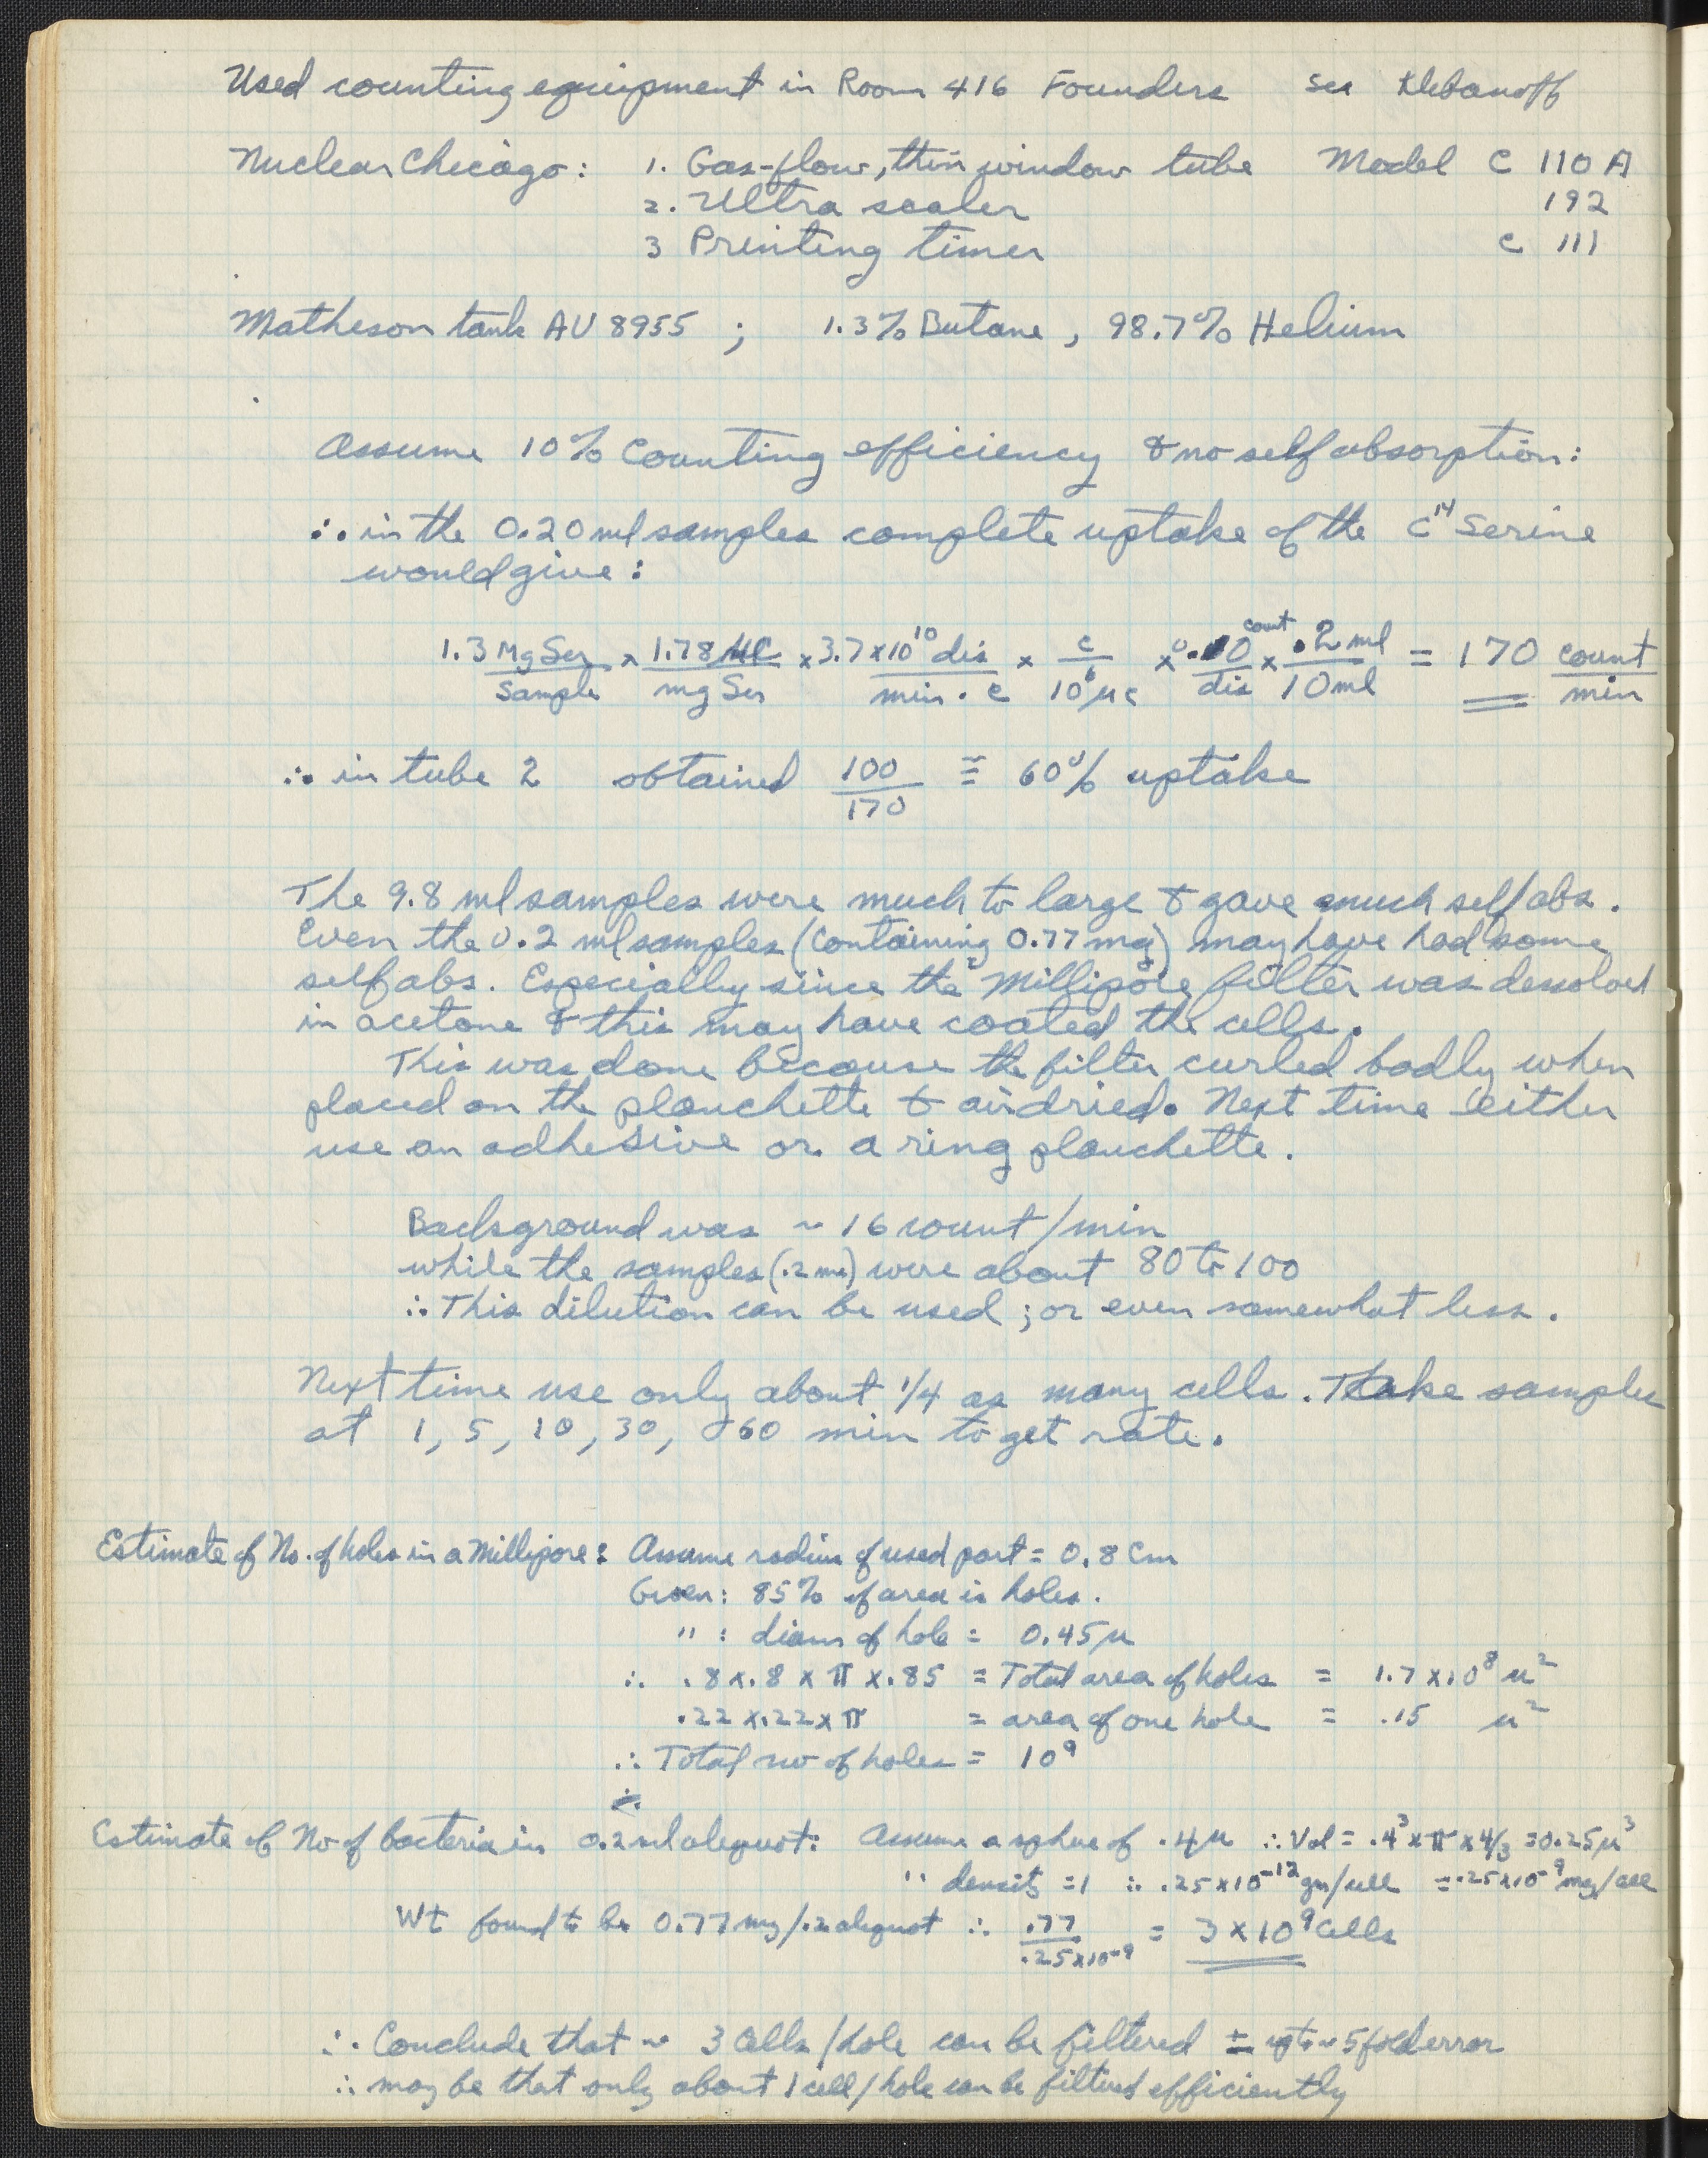 Used counting equipment in Room 416 Founders see Klebanoff
Nuclear Chicago: 1. Gas-flow, thin window tube Model C 110 A
2. Ultra scaler 192
3 Printing timer C 111
Matheson tank AU 8955 ; 1.3% Butane, 98.7% Helium
Assume 10% Counting efficiency & no self absorption:
∴ in the 0.20 ml samples complete uptake of the C¹⁴ Serine
would give:
1.3 Mg Ser / Sample × 1.78 μC / mg Ser × 3.7×10¹⁰ dis / min. c × c / 10⁶ μc × 0.10 count / dis × .2 ml / 10 ml = 170 count / min
∴ in tube 2 obtained 100/170 ≅ 60% uptake
The 9.8 ml samples were much to large & gave much self abs.
Even the 0.2 ml samples (containing 0.77 mg) may have had some
self abs. Especially since the Millipore filter was desolved
in acetone & this may have coated the cells.
This was done because the filter curled badly when
placed on the planchette & air dried. Next time either
use an adhesive or a ring planchette.
Background was ~ 16 count/min
while the samples (.2 ml) were about 80 to 100
∴ This dilution can be used ; or even somewhat less.
Next time use only about 1/4 as many cells. Take samples
at 1, 5, 10, 30, & 60 min to get rate.
Estimate of No. of holes in a Millipore: Assume radius of used part = 0.8 cm
Given: 85% of area is holes.
" : diam of hole = 0.45 μ
∴ .8 x .8 x π x .85 = Total area of holes = 1.7 x 10⁸ μ²
.22 x .22 x π = area of one hole = .15 μ²
∴ Total no of holes = 10⁹
Estimate of No of bacteria in 0.2 ml alequot: Assume a sphere of .4 μ ∴ Vol = .4³ x π x 4/3 = 0.25 μ³
" density = 1 ∴ .25 x 10⁻¹² gm/cell = .25 x 10⁻⁹ mg/cell
Wt found to be 0.77 mg/.2 alequot ∴ .77 / .25 x 10⁻⁹ = 3 x 10⁹ Cells
∴ Conclude that ~ 3 cells/hole can be filtered ± up to ~ 5 fold error
∴ may be that only about 1 cell/hole can be filtered efficiently